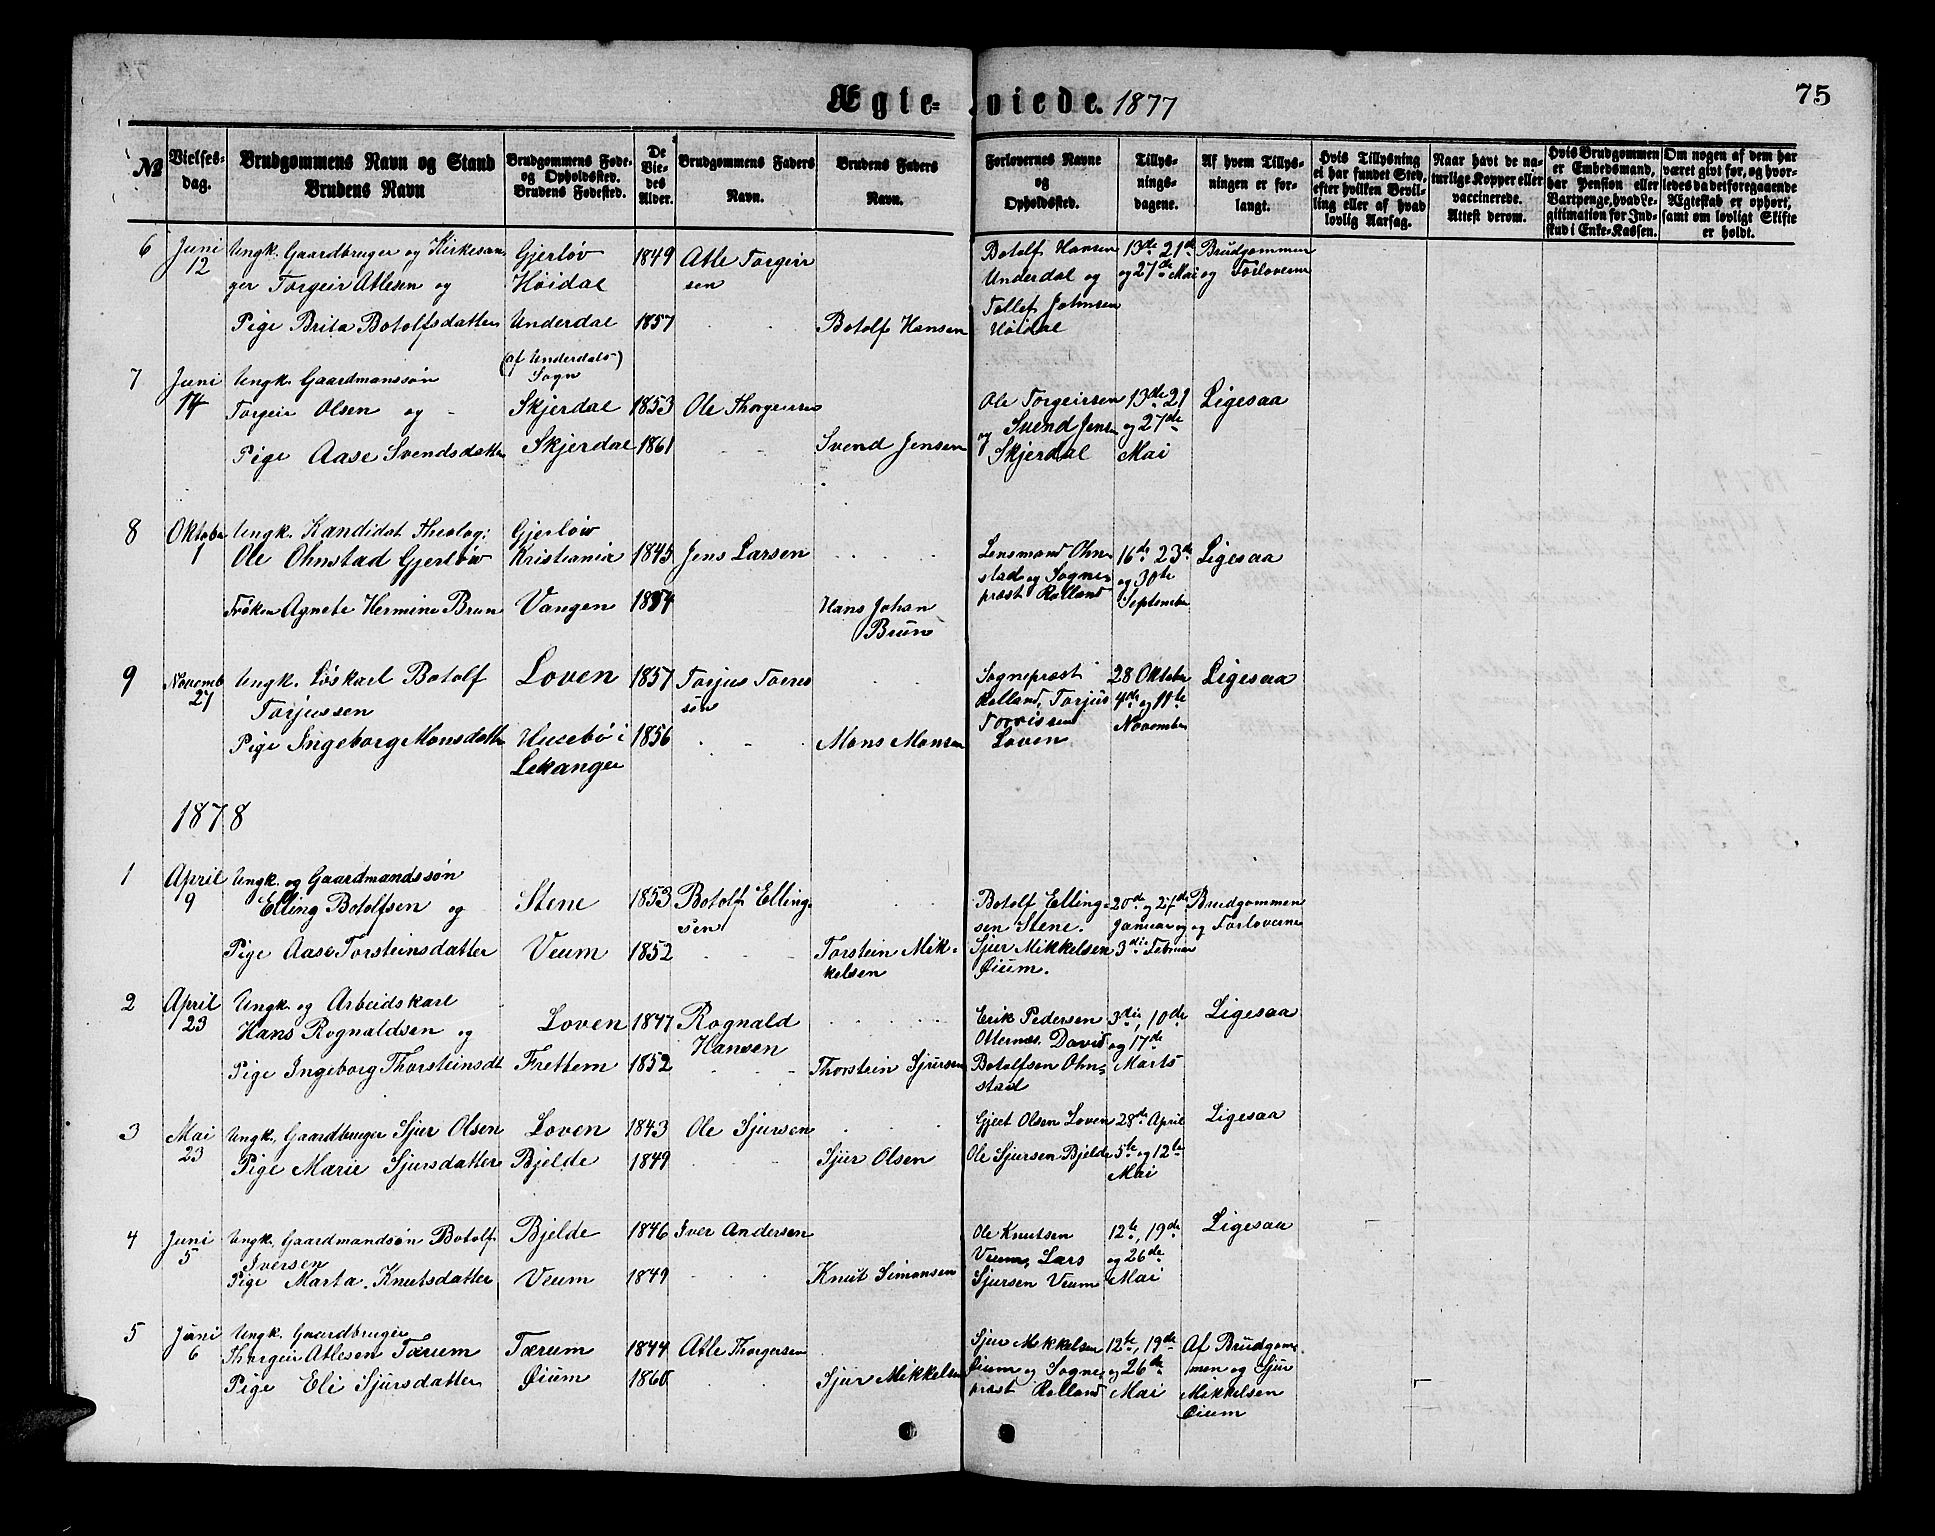 75
Ægte-viede. 1877
№
Vielses-dag.
Brudgommens Navn og Stand
Brudens Navn
Brudgommens Føde- og Opholdssted. Brudens Fødested.
De Viedes Alder.
Brudgommens Faders Navn.
Brudens Faders Navn.
Forlovernes Navne og Opholdssted.
Tillysningsdagene.
Af hvem Tillysningen er forlangt.
Hvis Tillysning ei har fundet Sted, efter hvilken Bevilling eller af hvad lovlig Aarsag.
Naar havt de naturlige Kopper eller vaccinerede. Attest derom.
Hvis Brudgommen er Embedsmand, har Pension eller Vartpenge, hvad Legitimation for Indskud i Enke-Kassen.
Om nogen af dem har været givt før, og hvorledes da det foregaaende Ægteskab er ophørt, samt om lovligt Skifte er holdt.
6 Juni 12 Ungk. Gaardbruger og Kirkesanger Torgeir Atlesen og Gjerløv Høidal 1849 Atle Torgeirsen
Pige Brita Botolfsdatter Underdal 1857 Botolf Hansen
Botolf Hansen Underdal og Tollef Johnsen Høidal
13de 21de og 27de Mai
Brudgommen og Forloverne
7 Juni 14 Ungk. Gaardmanssøn Torgeir Olsen og (af Underdals Sogn) Skjerdal 1853 Ole Thorgeirsen
Pige Aase Svendsdatter Skjerdal 1861 Svend Jensen
Ole Torgeirsen og Svend Jensen Skjerdal
13de 21 og 27de Mai
Ligesaa
8 Oktober 1 Ungk. Kandidat Theolog: Ole Ohnstad Gjerløw Gjerløw Kristiania 1845 Jens Larsen
Frøken Agnete Hermine Brun Vangen 1854 Hans Johan Brun
Lensmand Ohnstad og Sogneprest Rolland
16de 23de og 30te September
Ligesaa
9 Novemb 27 Ungk. Løskarl Botolf Torjussen Loven 1857 Torjus Torressøn
Pige Ingeborg Monsdatter Husebø i Lekanger 1856 Mons Monsen
Sogneprest Rolland, Torjus Torrissen Loven
28 Oktober 4de og 11te November
Ligesaa
1878
1 April 9 Ungk. og Gaardmandssøn Elling Botolfsen og Stene 1853 Botolf Ellingsen
Pige Aase Torsteinsdatter Veum 1852 Torstein Mikkelsen
Botolf Ellingsen Stene. Sjur Mikkelsen Øium.
20de og 27de Januar og 3die Februar
Brudgommen og Forloverne
2 April 23 Ungk. og Arbeidskarl Hans Rognaldsen og Loven 1847 Rognald Hansen
Pige Ingeborg Thorsteinsdt Frettem 1852 Thorstein Sjursen
Erik Pedersen Otternæs. David Botolfsen Ohnstad
3die, 10de og 17de Marts
Ligesaa
3 Mai 23 Ungk. Gaardbruger Sjur Olsen Loven 1843 Ole Sjursen
Pige Marie Sjursdatter Bjelde 1849 Sjur Olsen
Gjert Olsen Loven
Ole Sjursen Bjelde
28de April 5te og 12te Mai
Ligesaa
4 Juni 5 Ungk. Gaardmandsøn Botolf Iversen Bjelde 1846 Iver Andersen
Pige Marta Knutsdatter Veum 1849 Knut Simonsen
Ole Knutsen Veum, Lars Sjursen Veum
12te, 19de og 26de Mai
Ligesaa
5 Juni 6 Ungk. Gaardbruger Thorgeir Atlesen Tærum Tærum 1844 Atle Thorgersen
Pige Eli Sjursdatter Øium 1860 Sjur Mikkelsen
Sjur Mekkelsen Øium og Sogneprest Rolland
12te, 19de og 26de Mai
Af Brudgommen og Sjur Mikkelsen Øium